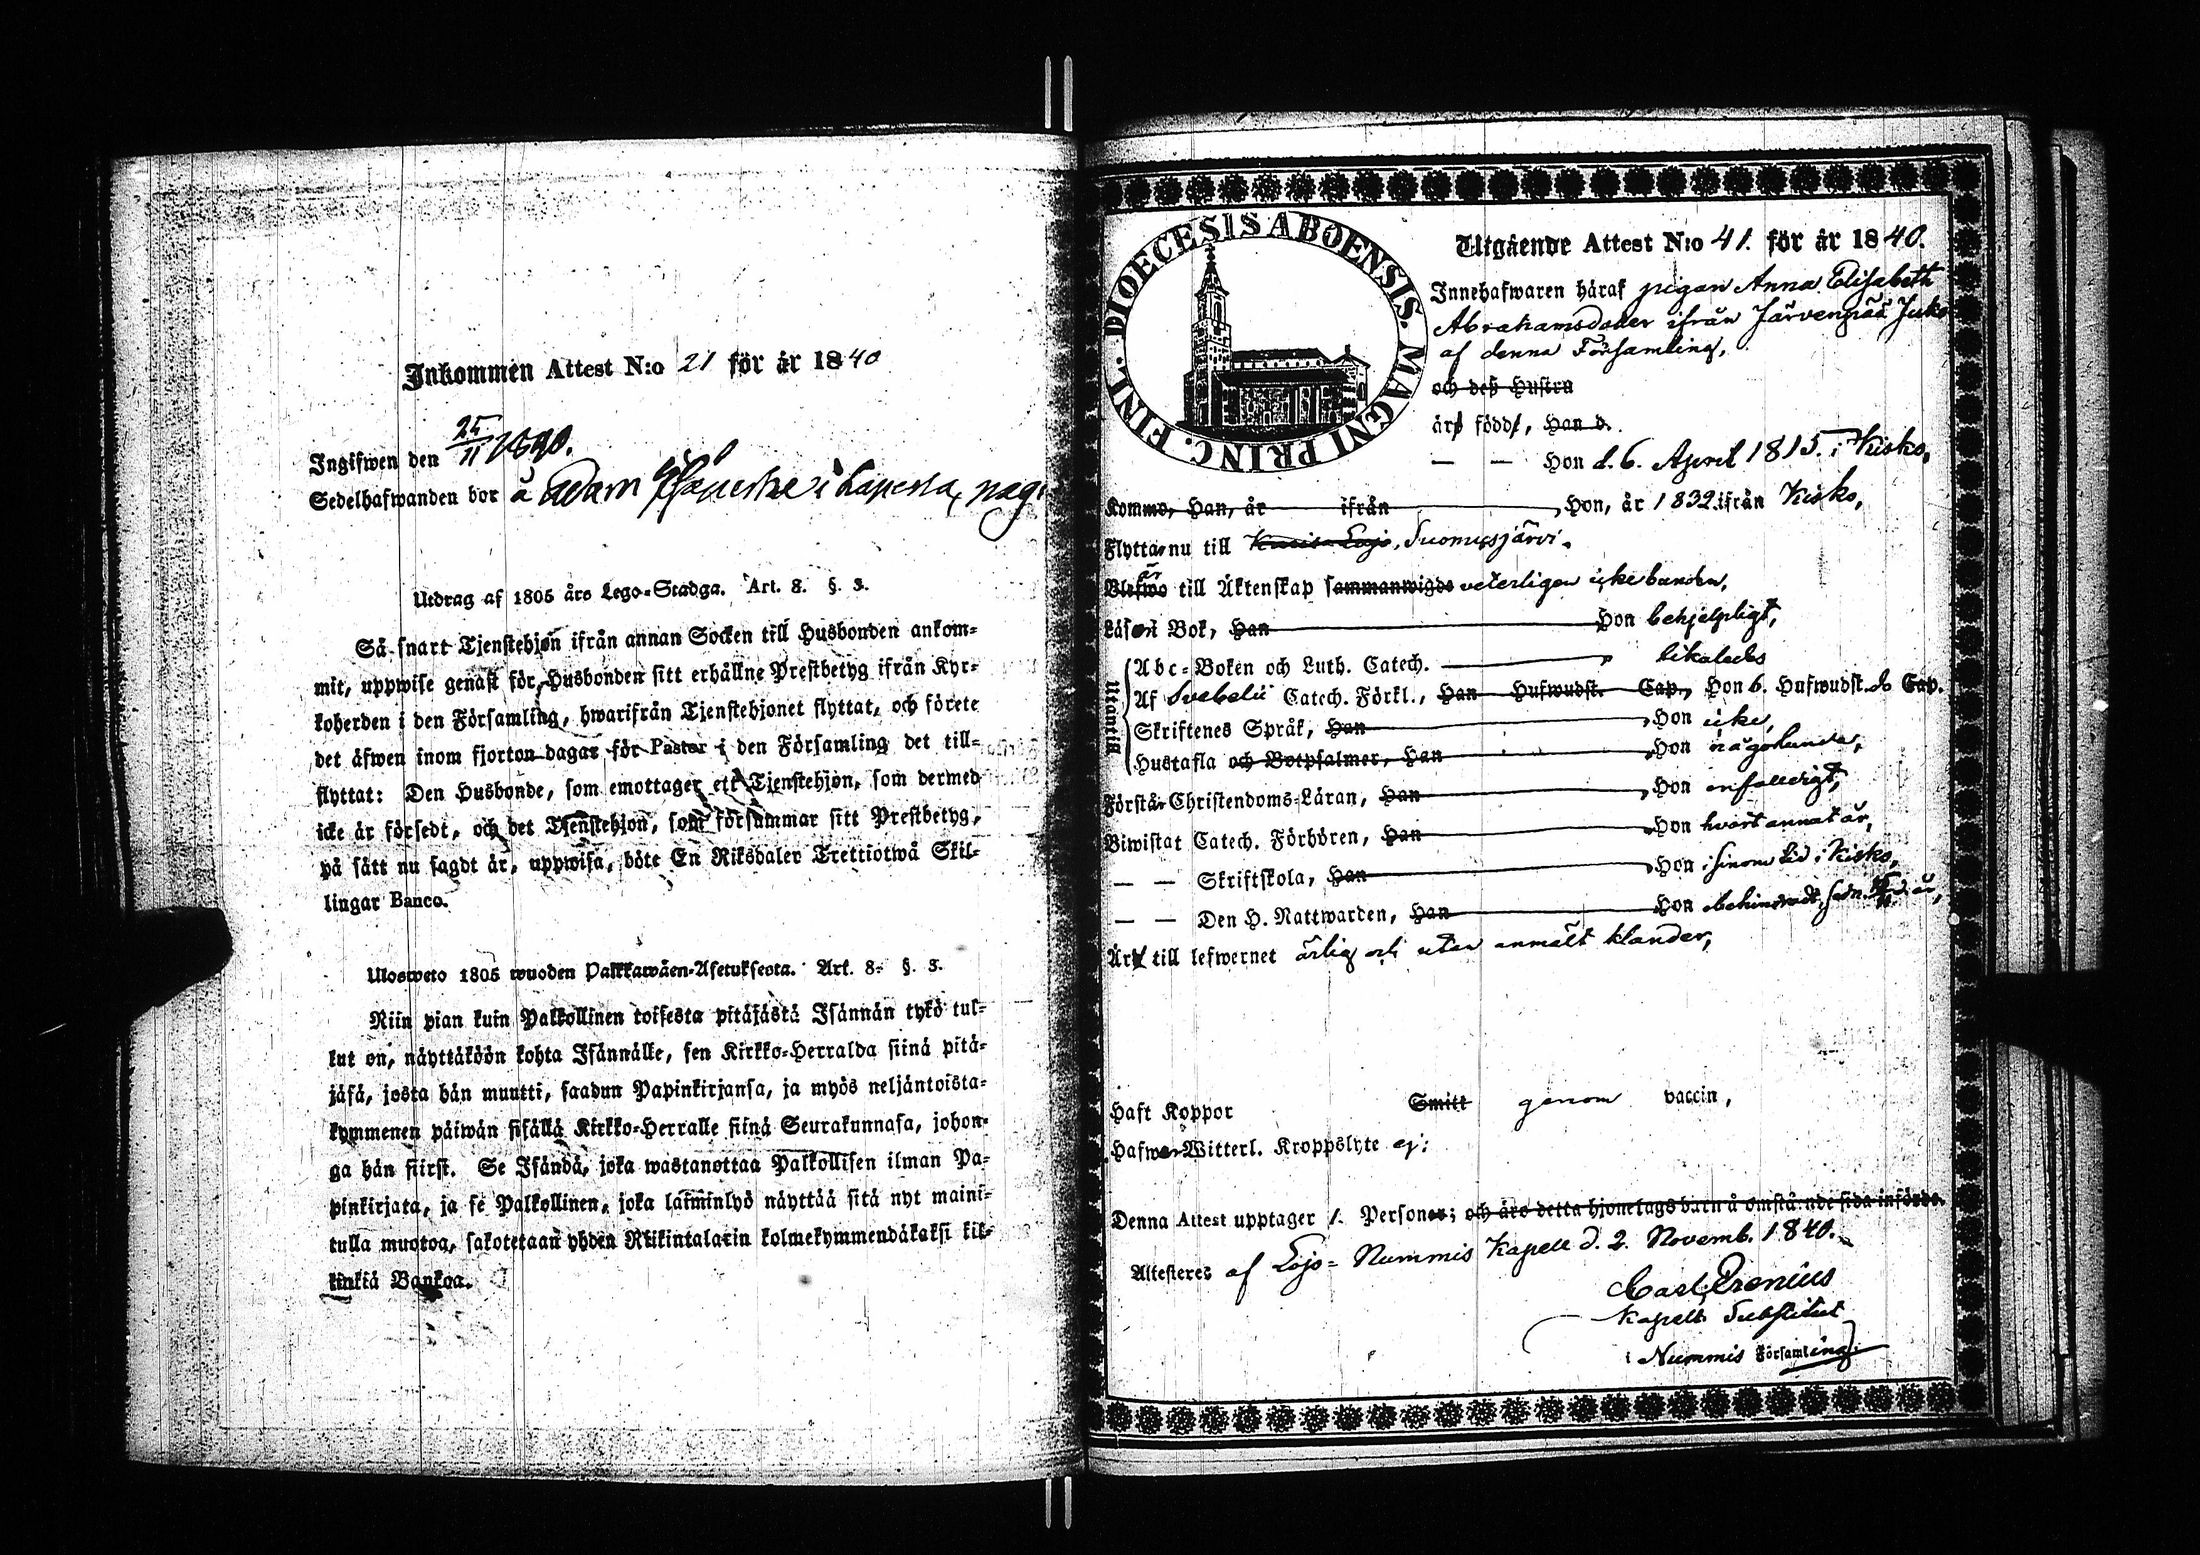 Inkommen Attest N:o 21 för år 1840
Ingifwen den 25/11 1840.
Sedelhafwanden bor å Adam i Laperla,
Utdrag af 1805 års Lego-Stadga. Art. 8. §. 3.
Så snart Tjenstehjon ifrån annan Socken till Husbonden ankom-
mit, uppwise genast för Husbonden sitt erhållne Prestbetyg ifrån Kyr-
koherden i den Församling, hwarifrån Tjenstehjonet flyttat, och förete
det äfwen inom fjorton dagar för Pastor i den Församling det till-
flyttat: Den Husbonde, som emottager ett Tjenstehjon, som dermed
icke är försedt, och det Tjenstehjon, som försummar sitt Prestbetyg,
på sätt nu sagdt är, uppwisa, böte En Riksdaler Trettiotwå Skil-
lingar Banco.
Ulosweto 1805 wuoden Palkkawäen-Asetuksesta. Art. 8. §. 3.
Niin pian kuin Palkollinen toisesta pitäjästä Isännän tykö tul-
lut on, näyttäköön kohta Isännälle, sen Kirkko-Herralda siinä pitä-
jäsä, josta hän muutti, saadun Papinkirjansa, ja myös neljäntoista-
kymmenen päiwän sisällä Kirkko-Herralle siinä Seurakunnasa, johon-
ga hän siirst. Se Isändä, joka wastanottaa Palkollisen ilman Pa-
pinkirjata, ja se Palkollinen, joka laiminlyö näyttää sitä nyt maini-
tulla muotoa, sakotetaan yhden Riikintalarin kolmekymmendäkaksi kil-
linkiä Bankoa.
DIOECESIS ABOENSIS. MAGNI PRINC. FINL.
Utgående Attest N:o 41. för år 1840.
Innehafwaren häraf pigan Anna Elisabeth
Abrahamsdotter ifrån Järvenpää
af denna Församling,
och deß Hustru
äro födde, Han d.
— — Hon d. 6. April 1815. i Kisko,
Kommo, Han, år ifrån , Hon, år 1832 ifrån Kisko,
Flyttar nu till Lojo, Suomusjärvi.
Blefwo är till Äktenskap sammanwigde veterligen icke bunden,
Läser i Bok, Han Hon behjelpligt,
Utantill
Abc-Boken och Luth. Catech. likaledes
Af Svebelii Catech. Förkl., Han Hufwudst. Cap., Hon 6. Hufwudst. do Cap.
Skriftenes Språk, Han , Hon icke,
Hustafla och Botpsalmer, Han , Hon någorlunda,
Förstår Christendoms-Läran, Han , Hon enfalldigt,
Biwistat Catech. Förhören, Han , Hon hvart annat år,
— — Skriftskola, Han , Hon i sinom tid i Kisko,
— — Den H. Nattwarden, Han , Hon obehindradt, d. år,
Är till lefwernet ärlig och utan anmält klander,
Haft Koppor Smitt genom vaccin,
Hafwer Witterl. Kroppslyte ej:
Denna Attest upptager 1. Personer; och äro detta hjonelags barn å omstående sida införde.
Attesteres af Lojo-Nummis Kapell d. 2. Novemb. 1840.
Carl Prenius
Kapells Substitut
i Nummis Församling.